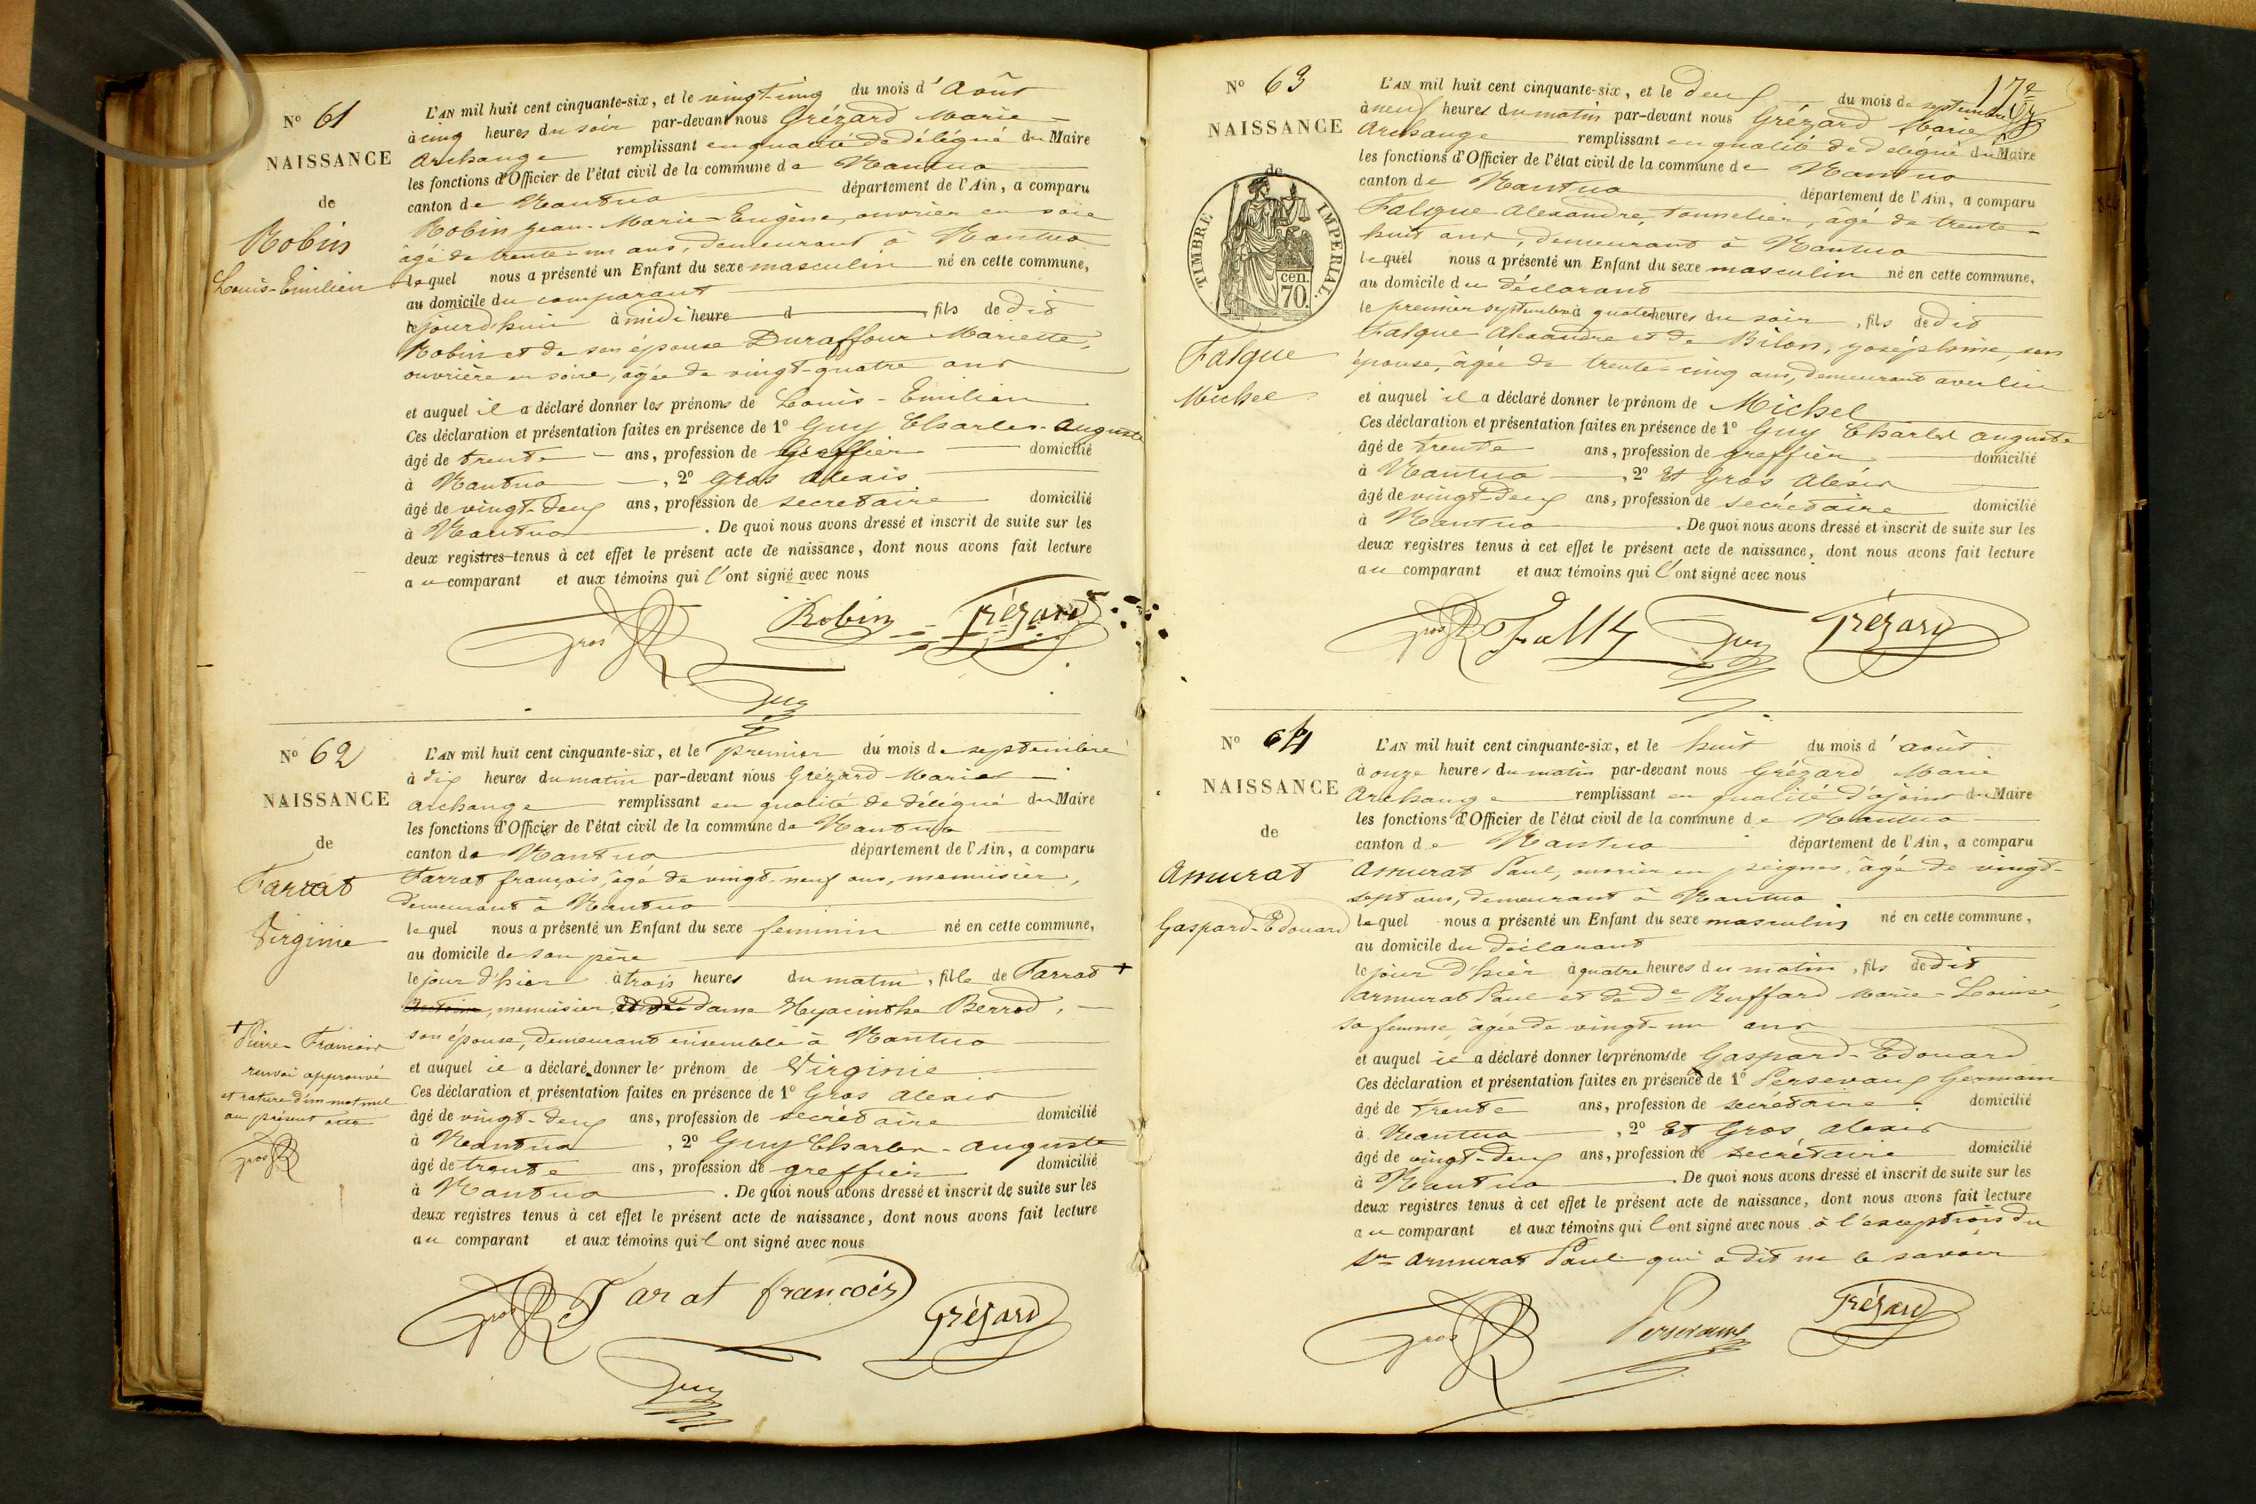 N° 61
NAISSANCE
de
Robin
Louis-Emilien
L'AN mil huit cent cinquante-six, et le vingt-cinq du mois d'Août
à cinq heures du soir par-devant nous Grézard Marie
Archange remplissant en qualité de délégué du Maire
les fonctions d'Officier de l'état civil de la commune de Nantua
canton de Nantua département de l'Ain, a comparu
Robin Jean-Marie-Eugène, ouvrier en soie
âgé de trente-un ans, demeurant à Nantua
lequel nous a présenté un Enfant du sexe masculin né en cette commune,
au domicile du comparant
le jourd'hui à midi heure d , fils de dit
Robin et de son épouse Duraffour Mariette,
ouvrière en soie, âgée de vingt-quatre ans
et auquel il a déclaré donner les prénoms de Louis-Emilien
Ces déclaration et présentation faites en présence de 1° Guy Charles-Auguste
âgé de trente ans, profession de Greffier domicilié
à Nantua , 2° Gros Alexis
âgé de vingt-deux ans, profession de secretaire domicilié
à Nantua . De quoi nous avons dressé et inscrit de suite sur les
deux registres tenus à cet effet le présent acte de naissance, dont nous avons fait lecture
au comparant et aux témoins qui l'ont signé avec nous
Gros Robin Grézard
Guy
N° 62
NAISSANCE
de
Farrat
Virginie
L'AN mil huit cent cinquante-six, et le premier du mois de septembre
à dix heures du matin par-devant nous Grézard Marie
Archange remplissant en qualité de délégué du Maire
les fonctions d'Officier de l'état civil de la commune de Nantua
canton de Nantua département de l'Ain, a comparu
Farrat françois, âgé de vingt-neuf ans, menuisier,
demeurant à Nantua
lequel nous a présenté un Enfant du sexe feminin né en cette commune,
au domicile de son père
le jour d'hier à trois heures du matin, fille de Farrat +
menuisier, et de dame Hyacinthe Berrod,
son épouse, demeurant ensemble à Nantua
et auquel il a déclaré donner le prénom de Virginie
Ces déclaration et présentation faites en présence de 1° Gros Alexis
âgé de vingt-deux ans, profession de secrétaire domicilié
à Nantua , 2° Guy Charles-Auguste
âgé de trente ans, profession de greffier domicilié
à Nantua . De quoi nous avons dressé et inscrit de suite sur les
deux registres tenus à cet effet le présent acte de naissance, dont nous avons fait lecture
au comparant et aux témoins qui l'ont signé avec nous
+ Pierre François
renvoi approuvé
et rature d'un mot nul
au présent acte
Gros
Gros Farat francois Grézard
Guy
N° 63
NAISSANCE
de
TIMBRE IMPERIAL
cen.
70.
Falque
Michel
17e
L'AN mil huit cent cinquante-six, et le deux du mois de septembre
à neuf heures du matin par-devant nous Grézard Marie
Archange remplissant en qualité de délégué du Maire
les fonctions d'Officier de l'état civil de la commune de Nantua
canton de Nantua département de l'Ain, a comparu
Falque Alexandre, tonnelier, âgé de trente-
huit ans, demeurant à Nantua
lequel nous a présenté un Enfant du sexe masculin né en cette commune,
au domicile du déclarant
le premier septembre à quatre heures du soir, fils de dit
Falque Alexandre et de Bilon, Joséphine, son
épouse, âgée de trente-cinq ans, demeurant avec lui
et auquel il a déclaré donner le prénom de Michel
Ces déclaration et présentation faites en présence de 1° Guy Charles Auguste
âgé de trente ans, profession de greffier domicilié
à Nantua , 2° Et Gros Alexis
âgé de vingt-deux ans, profession de secrétaire domicilié
à Nantua . De quoi nous avons dressé et inscrit de suite sur les
deux registres tenus à cet effet le présent acte de naissance, dont nous avons fait lecture
au comparant et aux témoins qui l'ont signé avec nous
Gros Guy Grézard
N° 64
NAISSANCE
de
Amurat
Gaspard-Edouard
L'AN mil huit cent cinquante-six, et le huit du mois d'août
à onze heures du matin par-devant nous Grézard Marie
Archange remplissant en qualité d'ajoint du Maire
les fonctions d'Officier de l'état civil de la commune de Nantua
canton de Nantua département de l'Ain, a comparu
Amurat Paul, ouvrier en peignes, âgé de vingt-
sept ans, demeurant à Nantua
lequel nous a présenté un Enfant du sexe masculin né en cette commune,
au domicile du déclarant
le jour d'hier à quatre heures du matin, fils de dit
Armurat Paul et de De Ruffard Marie-Louise,
sa femme, âgée de vingt-un ans
et auquel il a déclaré donner les prénoms de Gaspard-Edouard
Ces déclaration et présentation faites en présence de 1° Persevaux Germain
âgé de trente ans, profession de secrétaire domicilié
à Nantua , 2° Et Gros Alexis
âgé de vingt-deux ans, profession de secrétaire domicilié
à Nantua . De quoi nous avons dressé et inscrit de suite sur les
deux registres tenus à cet effet le présent acte de naissance, dont nous avons fait lecture
au comparant et aux témoins qui l'ont signé avec nous à l'exception du
Sr Armurat Paul qui a dit ne le savoir
Gros Persevaux Grézard